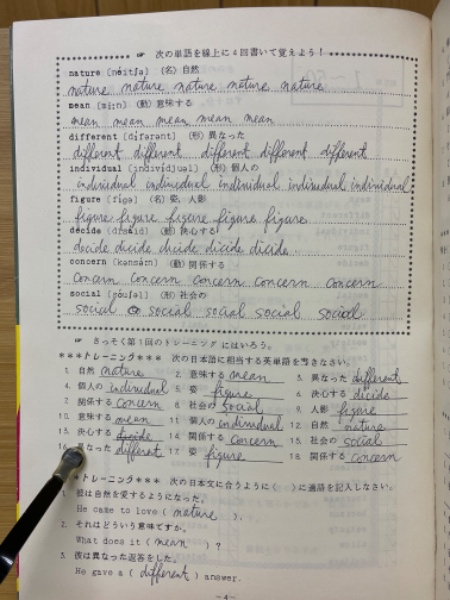 ☞ 次の単語を線上に4回書いて覚えよう!
nature (néitʃə) (名) 自然
nature nature nature nature nature
mean (míːn) (動) 意味する
mean mean mean mean mean
different (dífərənt) (形) 異なった
different different different different different
individual (indivídjuəl) (形) 個人の
individual individual individual individual individual
figure (fígə) (名) 姿、人影
figure figure figure figure figure
decide (disáid) (動) 決心する
decide decide decide decide decide
concern (kənsə́ːn) (動) 関係する
concern concern concern concern concern
social (sóuʃəl) (形) 社会の
social social social social social
☞ さっそく第1回のトレーニングにはいろう。
***トレーニング*** 次の日本語に相当する英単語を書きなさい。
1. 自然 nature 2. 意味する mean 3. 異なった different
4. 個人の individual 5. 姿 figure 6. 決心する decide
7. 関係する concern 8. 社会の social 9. 人影 figure
10. 意味する mean 11. 個人の individual 12. 自然 nature
13. 決心する decide 14. 関係する concern 15. 社会の social
16. 異なった different 17. 姿 figure 18. 関係する concern
*トレーニング*** 次の日本文に合うように( )に適語を記入しなさい。
1. 彼は自然を愛するようになった。
He came to love ( nature ).
2. それはどういう意味ですか。
What does it ( mean ) ?
3. 彼は異なった返答をした。
He gave a ( different ) answer.
-4-